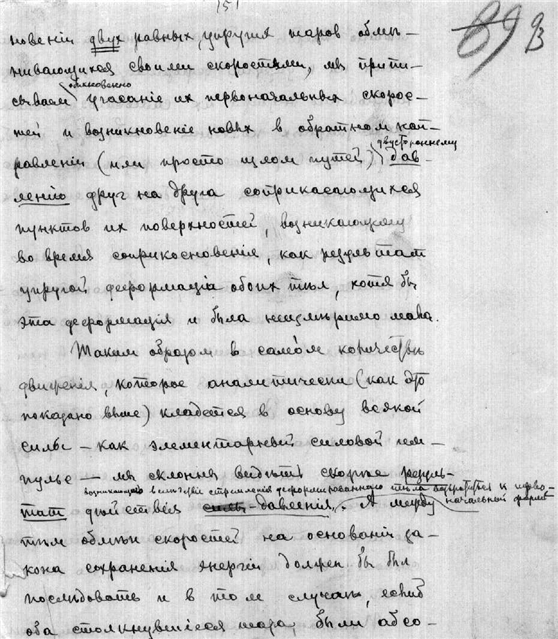 151
89
93
новеніи двух равных упругих шаров обмѣ-
нивающихся своими скоростями, мы припи-
обыкновенно
сываем угасаніе их первоначальных скорос-
тей и возникновеніе новых в обратном нап-
равленіи (или просто цѣлом путей) двустороннему дав-
ленію друг на друга соприкасающихся
пунктов их поверхностей, возникающему
во время соприкосновенія, как результат
упругой деформаціи обоих тѣл, хотя бы
эта деформація и была неизмѣримо мала.
Таким образом в самом количествѣ
движенія, которое аналитически (как это
показано выше) кладется в основу всякой
силы – как элементарный силовой им-
пульс – мы склонны видѣть скорѣе резуль-
возникающаго вслѣдствіе стремленія деформированнаго тѣла возвратиться к перво-
тат дѣйствія силы давленія. А между начальной формѣ
тѣм обмѣн скоростей на основаніи за-
кона сохраненія энергіи должен бы был
послѣдовать и в том случаѣ, еслиб
оба столкнувшіеся шара, были абсо-